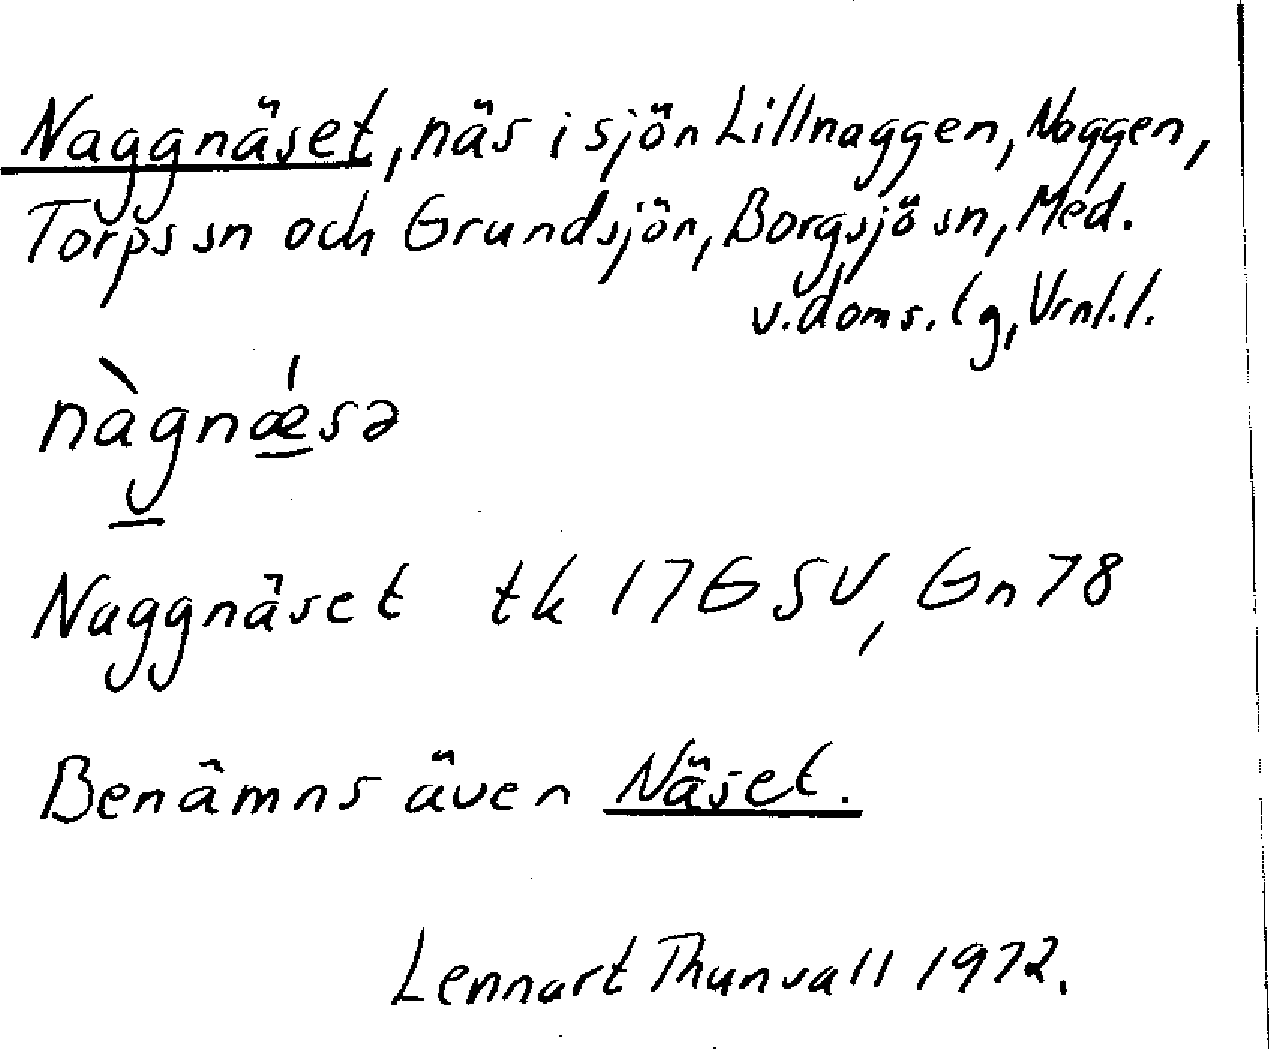 Naggnäset, näs i sjön Lillnaggen, Naggen,
Torps sn och Grundsjön, Borgsjö sn, Med.
v. doms. lg, Vrnl. l.
nàgnǽsə
Naggnäset tk 17G SV, Gn 78
Benämns även Näset.
Lennart Thunvall 1972.